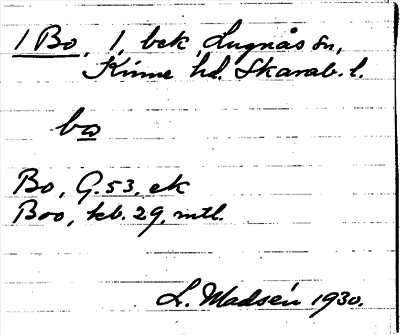 1 Bo, 1, bek, Lugnås sn,
Kinne hd. Skarab. l.
bω
Bo, G. 53, ek
Boo, kb. 29, mtl.
L. Madsén 1930.